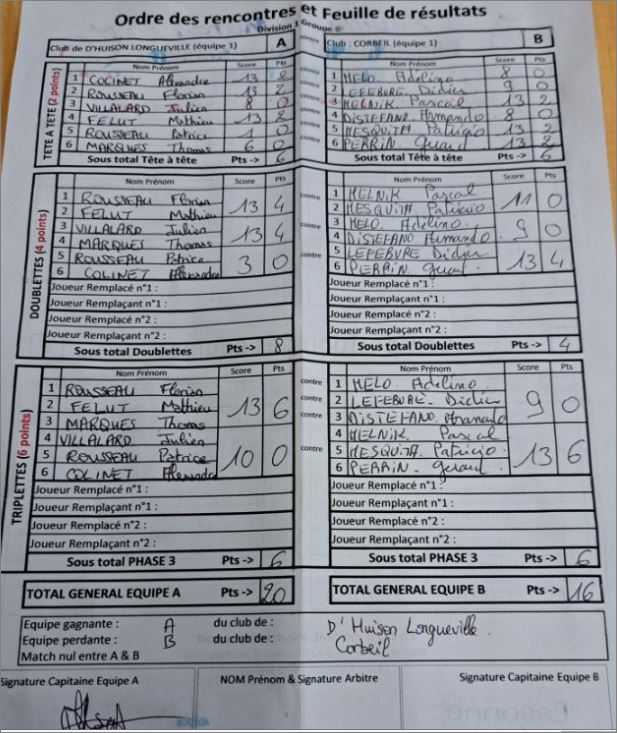 Ordre des rencontres et Feuille de résultats
Division 1 Groupe
Club de D'HUISON LONGUEVILLE (équipe 1) A contre Club : CORBEIL (équipe 1) B
TETE A TETE (2 points)
Nom Prénom Score Pts Nom Prénom Score Pts
1 COLINET Alexandre 13 2 contre 1 MELO Adelino 8 0
2 ROUSSEAU Florian 13 2 2 LEFEBURE Didier 9 0
3 VILLALARD Julien 8 0 3 MELNIK Pascal 13 2
4 FELUT Mathieu 13 2 4 DISTEFANO Armando 8 0
5 ROUSSEAU Patrice 1 0 5 MESQUITA Patricio 13 2
6 MARQUES Thomas 6 0 6 PERRIN Gerard 13 2
Sous total Tête à tête Pts -> 6 Sous total Tête à tête Pts -> 6
DOUBLETTES (4 points)
Nom Prénom Score Pts Nom Prénom Score Pts
1 ROUSSEAU Florian 13 4 contre 1 MELNIK Pascal 11 0
2 FELUT Mathieu 2 MESQUITA Patricio
3 VILLALARD Julien 13 4 contre 3 MELO. Adelino. 9 0
4 MARQUES Thomas 4 DISTEFANO Armando
5 ROUSSEAU Patrice 3 0 contre 5 LEFEBURE Didier 13 4
6 COLINET Alexandre 6 PERRIN Gerard.
Joueur Remplacé n°1 : Joueur Remplacé n°1 :
Joueur Remplaçant n°1 : Joueur Remplaçant n°1 :
Joueur Remplacé n°2 : Joueur Remplacé n°2 :
Joueur Remplaçant n°2 : Joueur Remplaçant n°2 :
Sous total Doublettes Pts -> 8 Sous total Doublettes Pts -> 4
TRIPLETTES (6 points)
Nom Prénom Score Pts Nom Prénom Score Pts
1 ROUSSEAU Florian contre 1 MELO. Adelino.
2 FELUT Mathieu 13 6 contre 2 LEFEBURE. Didier 9 0
3 MARQUES Thomas contre 3 DISTEFANO. Armando
4 VILLALARD Julien 4 MELNIK. Pascal
5 ROUSSEAU Patrice 10 0 contre 5 MESQUITA. Patricio. 13 6
6 COLINET Alexandre 6 PERRIN. Gerard.
Joueur Remplacé n°1 : Joueur Remplacé n°1 :
Joueur Remplaçant n°1 : Joueur Remplaçant n°1 :
Joueur Remplacé n°2 : Joueur Remplacé n°2 :
Joueur Remplaçant n°2 : Joueur Remplaçant n°2 :
Sous total PHASE 3 Pts -> 6 Sous total PHASE 3 Pts -> 6
TOTAL GENERAL EQUIPE A Pts -> 20 TOTAL GENERAL EQUIPE B Pts -> 16
Equipe gagnante : A du club de : D'Huison Longueville.
Equipe perdante : B du club de : Corbeil
Match nul entre A & B
Signature Capitaine Equipe A NOM Prénom & Signature Arbitre Signature Capitaine Equipe B